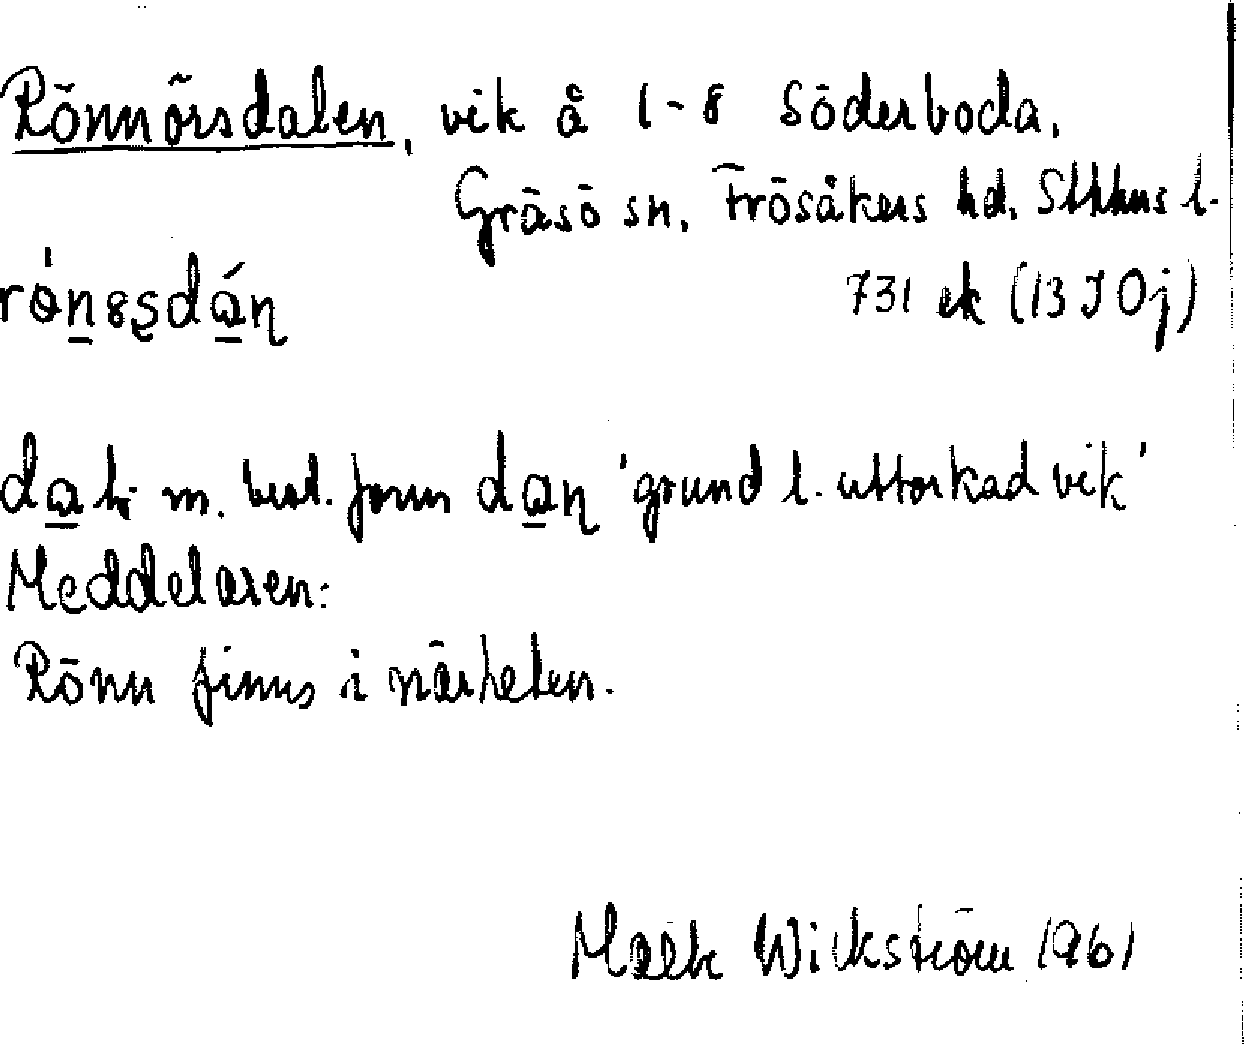 Rönnörsdalen, vik å 1-8 Söderboda,
Gräsö sn. Frösåkers hd. Sthlms l.
731 ek (13 I 0j)
m. best. form dan̥ 'grund l. uttorkad vik'
Meddelaren:
Rönn finns i närheten.
Wickström 1961